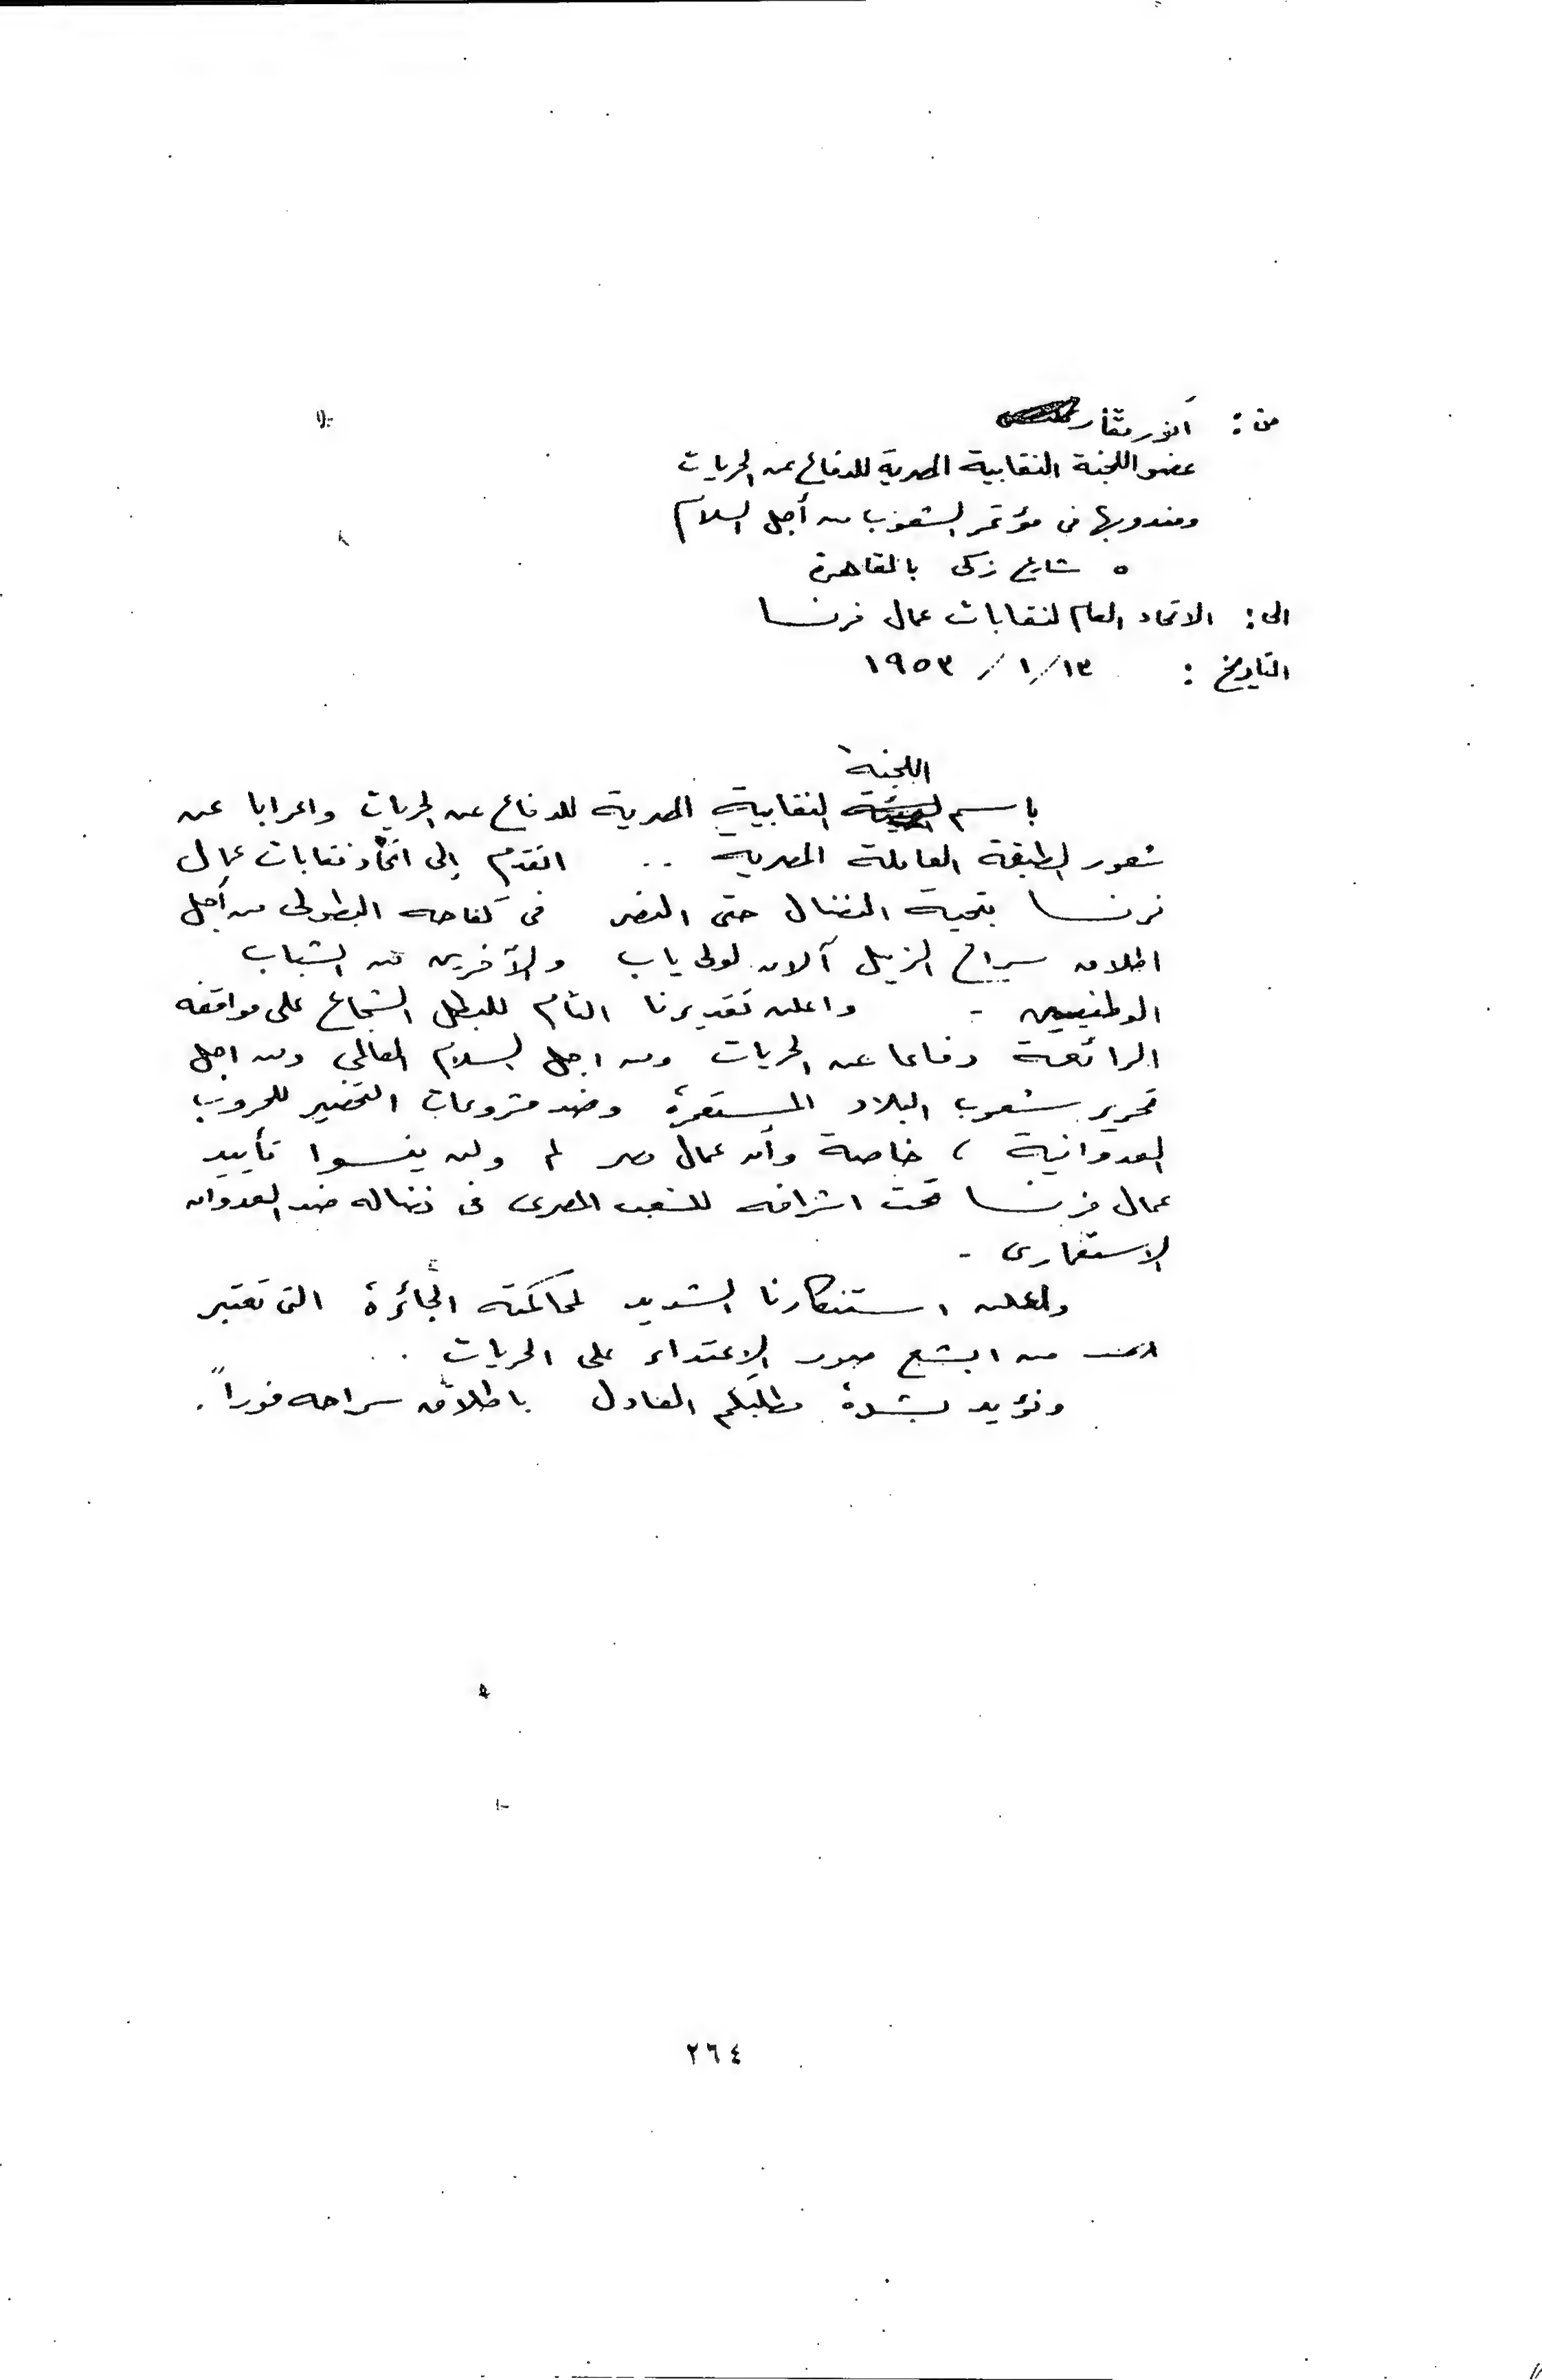 من : أنور مقار
عضو اللجنة النقابية المصرية للدفاع عن الحريات
ومندوبها فى مؤتمر الشعوب من أجل السلام
٥ شارع زكى بالقاهرة
الى : الاتحاد العام لنقابات عمال فرنسا
التاريخ : ١٣ / ١ / ١٩٥٣
اللجنة
باسم النقابية المصرية للدفاع عن الحريات واعرابا عن
شعور الطبقة العاملة المصرية .. اتقدم إلى اتحاد نقابات عمال
فرنسا بتحية النضال حتى النصر فى كفاحه البطولى من أجل
اطلاق سراح الزميل آلان لولى ياب والآخرين من الشباب
الوطنيين - واعلن تقديرنا التام للبطل الشجاع على مواقفه
الرائعة دفاعا عن الحريات ومن اجل السلام العالمي ومن اجل
تحرير شعوب البلاد المستعمرة وضد مشروعات التحضير للحروب
العدوانية ، خاصة وأن عمال مصر لم ولن ينسوا تأييد
عمال فرنسا تحت اشرافه للشعب المصرى فى نضاله ضد العدوان
الاستعمارى -
واعلن استنكارنا الشديد لمحاكمته الجائرة التى تعتبر
من ابشع صور الاعتداء على الحريات ..
ونؤيد بشدة مطلبكم العادل باطلاق سراحه فوراً .
٢٦٤